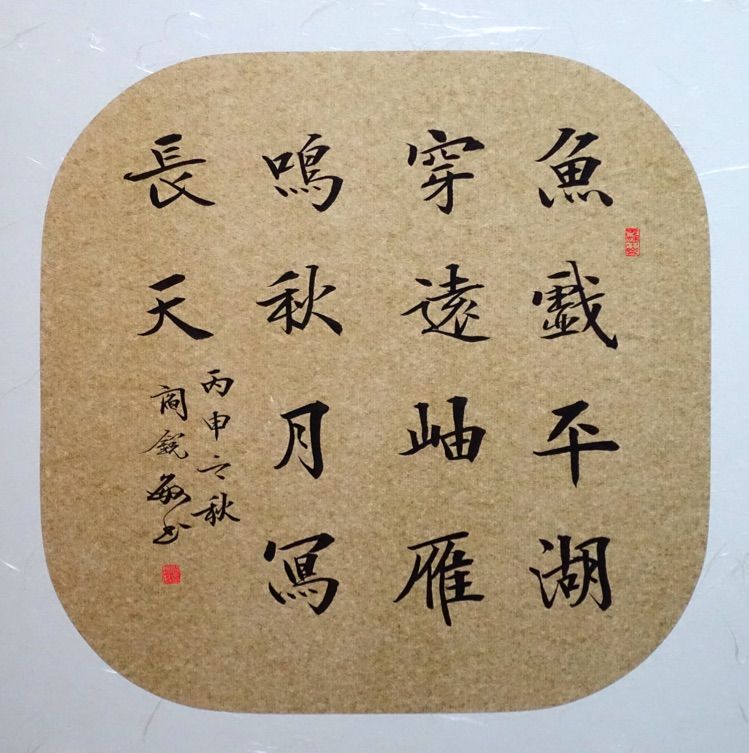 魚戲平湖
穿遠岫雁
鳴秋月寫
長天
丙申之秋
商銳敏书